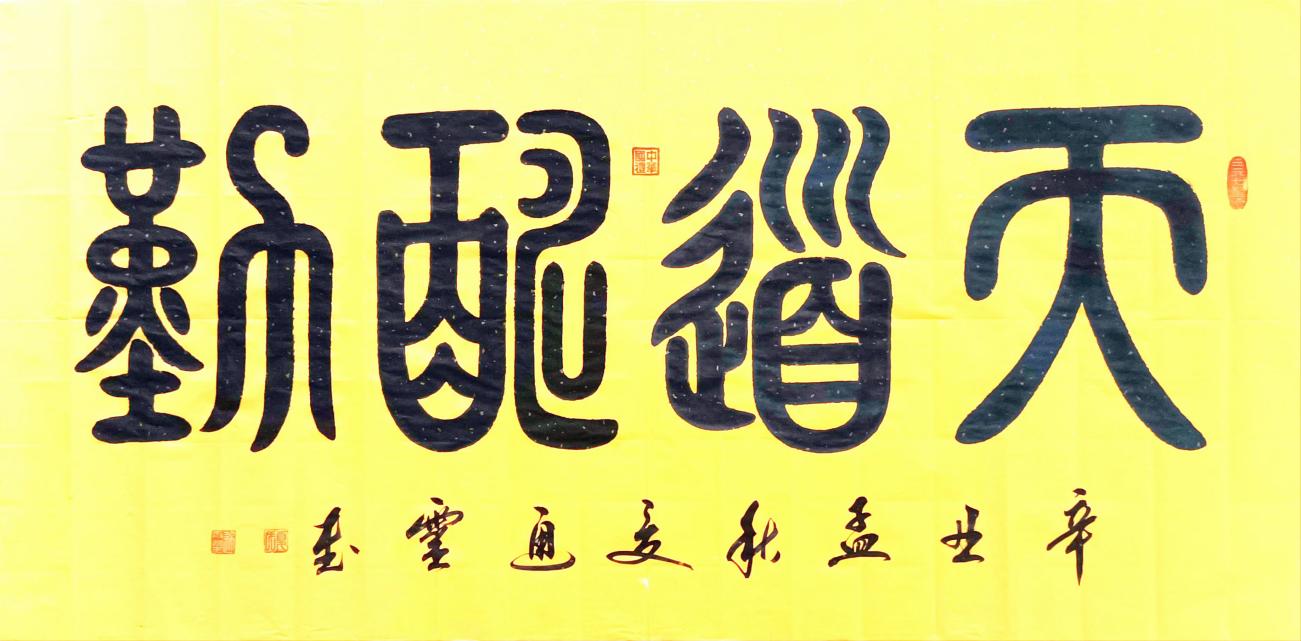 天道酬勤
辛丑孟秋夏通靈書